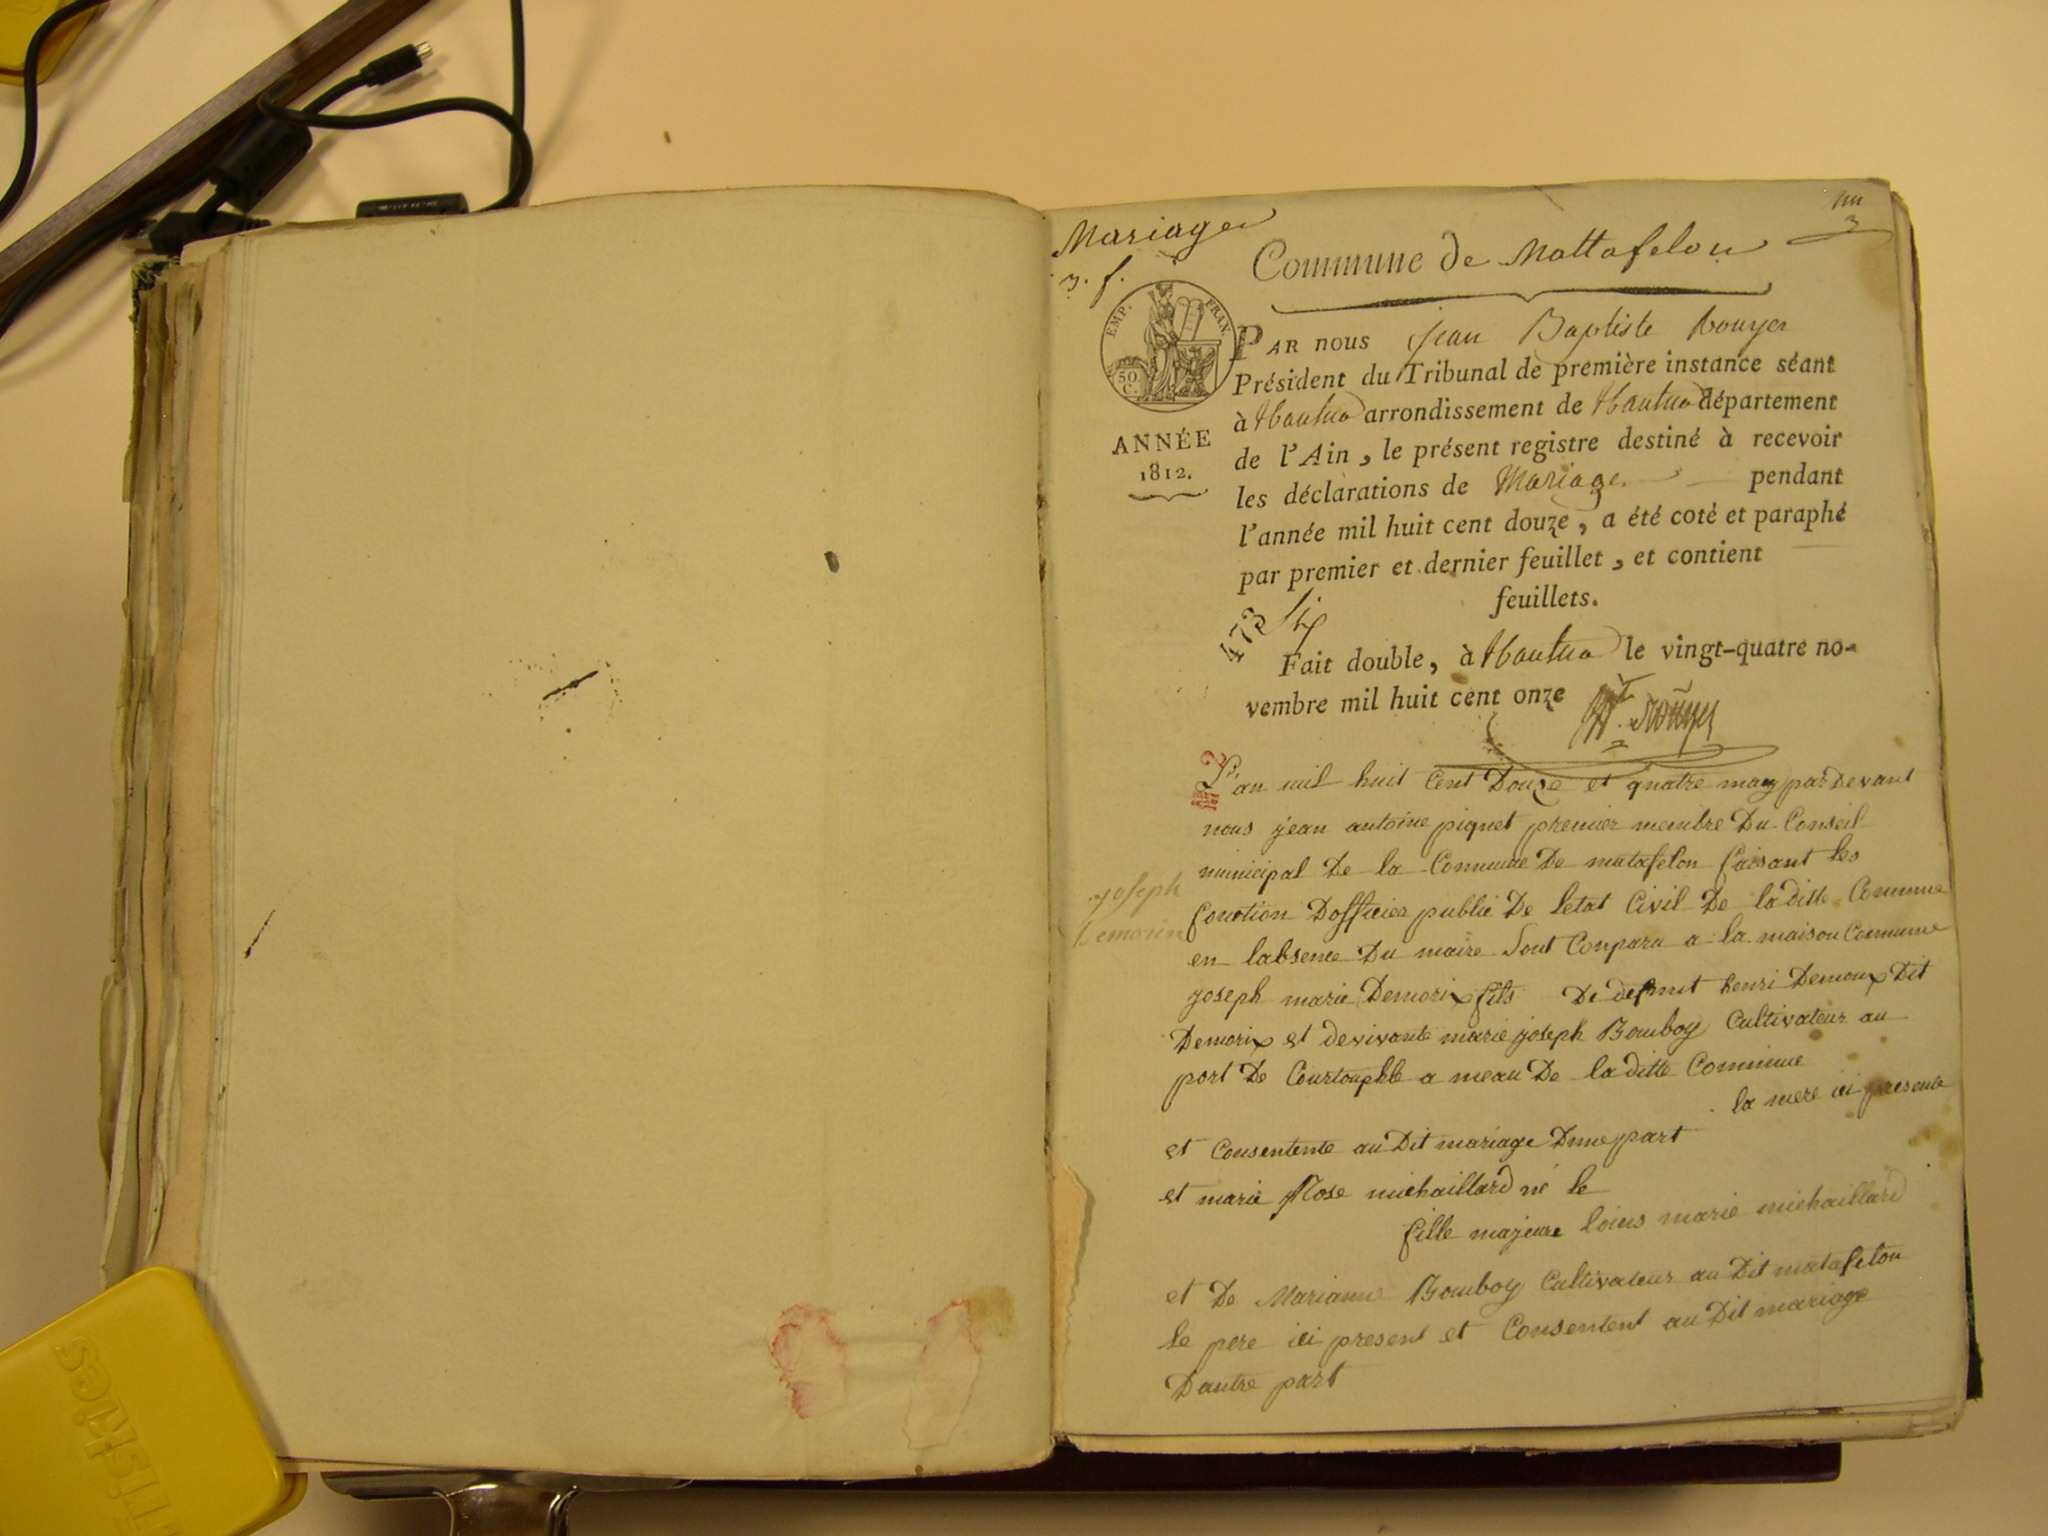 Mariages
3. f.
Commune de Mattafelon
3
EMP. FRAN.
50 C.
ANNÉE
1812.
PAR nous jean Baptiste Rouyer
Président du Tribunal de première instance séant
à Nantua arrondissement de Nantua département
de l'Ain, le présent registre destiné à recevoir
les déclarations de Mariage pendant
l'année mil huit cent douze, a été coté et paraphé
par premier et dernier feuillet, et contient
Six feuillets.
473
Fait double, à Nantua le vingt-quatre no-
vembre mil huit cent onze
Rouyer
L'an mil huit cent Douze et quatre may par devant
nous jean antoine piquet premier membre Du Conseil
municipal De la Commune De matafelon faisant les
fonction Dofficier public De letat Civil De la ditte Commune
en labsence Du maire Sont Conparu a la maison Commune
joseph
joseph marie Demorix fils De defunt henri Demoux Dit
Demorix et devivante marie joseph Bomboy Cultivateur au
port De a meau De la ditte Commune
la mere ici presente
et Consentente au Dit mariage Dune part
et marie Rose michaillard né le
fille majeure loius marie michaillard
et De Marianne Bomboy Cultivateur au Dit matafelon
le pere ici present et Consentent au Dit mariage
Dautre part